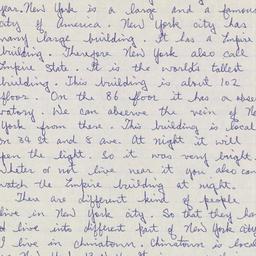 year. New York is a large and a famous
city of America. New York city has
many large building. It has a Empire
building. Therefore New York also call
Empire State. It is the world's tallest
building. This building is about 102
floor. On the 86 floor it has a obser
vatory. We can observe the vein of New
York from there. This building is local
on 34 st and 8 ave. At night it will
open the light. So it was very bright.
Wheter or not live near it you also can
watch the Empire building at night.
There are different kind of people
live in New York city. So that they ha
d live into different part of New York city
I live in Chinatown. Chinatown is loca